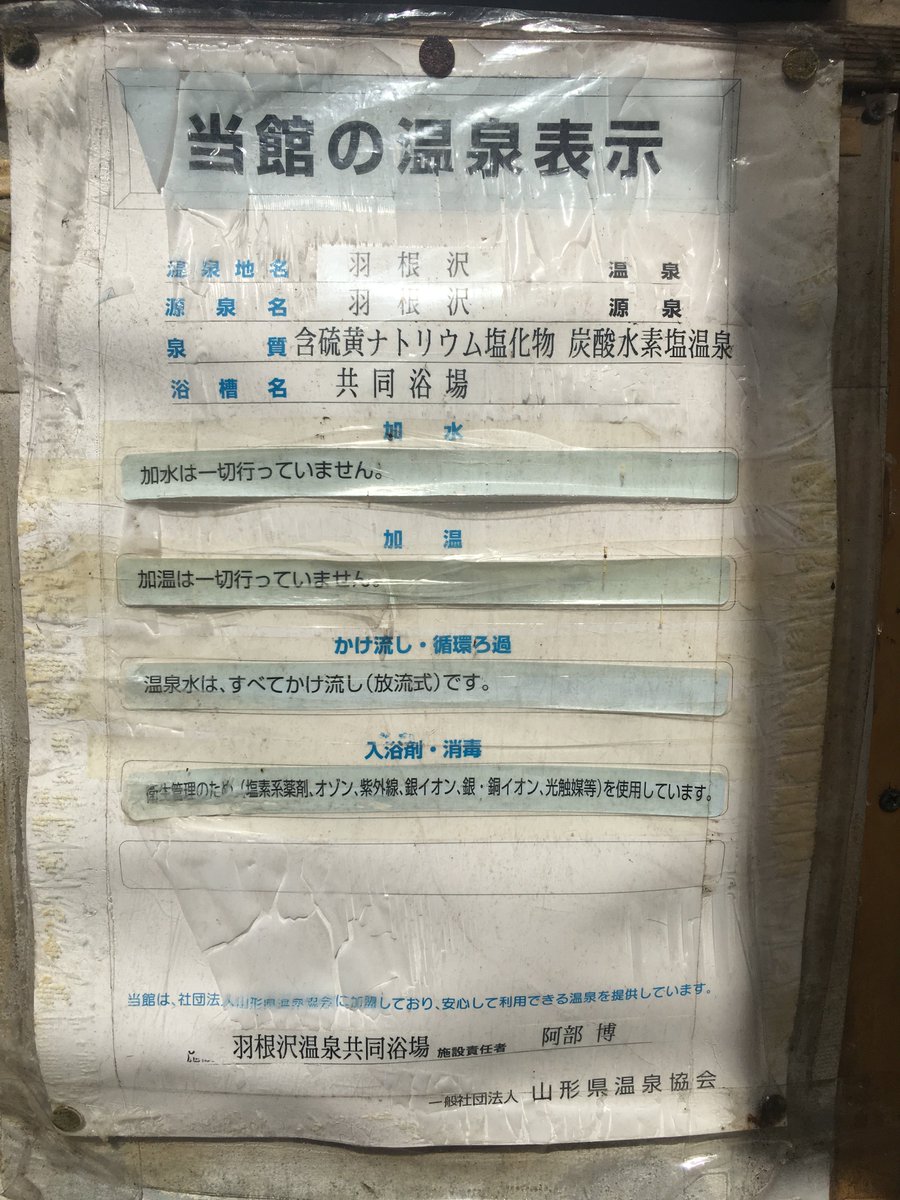 当館の温泉表示
温泉地名 羽根沢 温泉
源泉名 羽根沢 源泉
泉質 含硫黄ナトリウム塩化物 炭酸水素塩温泉
浴槽名 共同浴場
加水
加水は一切行っていません。
加温
加温は一切行っていません。
かけ流し・循環ろ過
温泉水は、すべてかけ流し(放流式)です。
入浴剤・消毒
衛生管理のため(塩素系薬剤、オゾン、紫外線、銀イオン、銀・銅イオン、光触媒等)を使用しています。
当館は、社団法人山形県温泉協会に加盟しており、安心して利用できる温泉を提供しています。
羽根沢温泉共同浴場 施設責任者 阿部 博
一般社団法人 山形県温泉協会